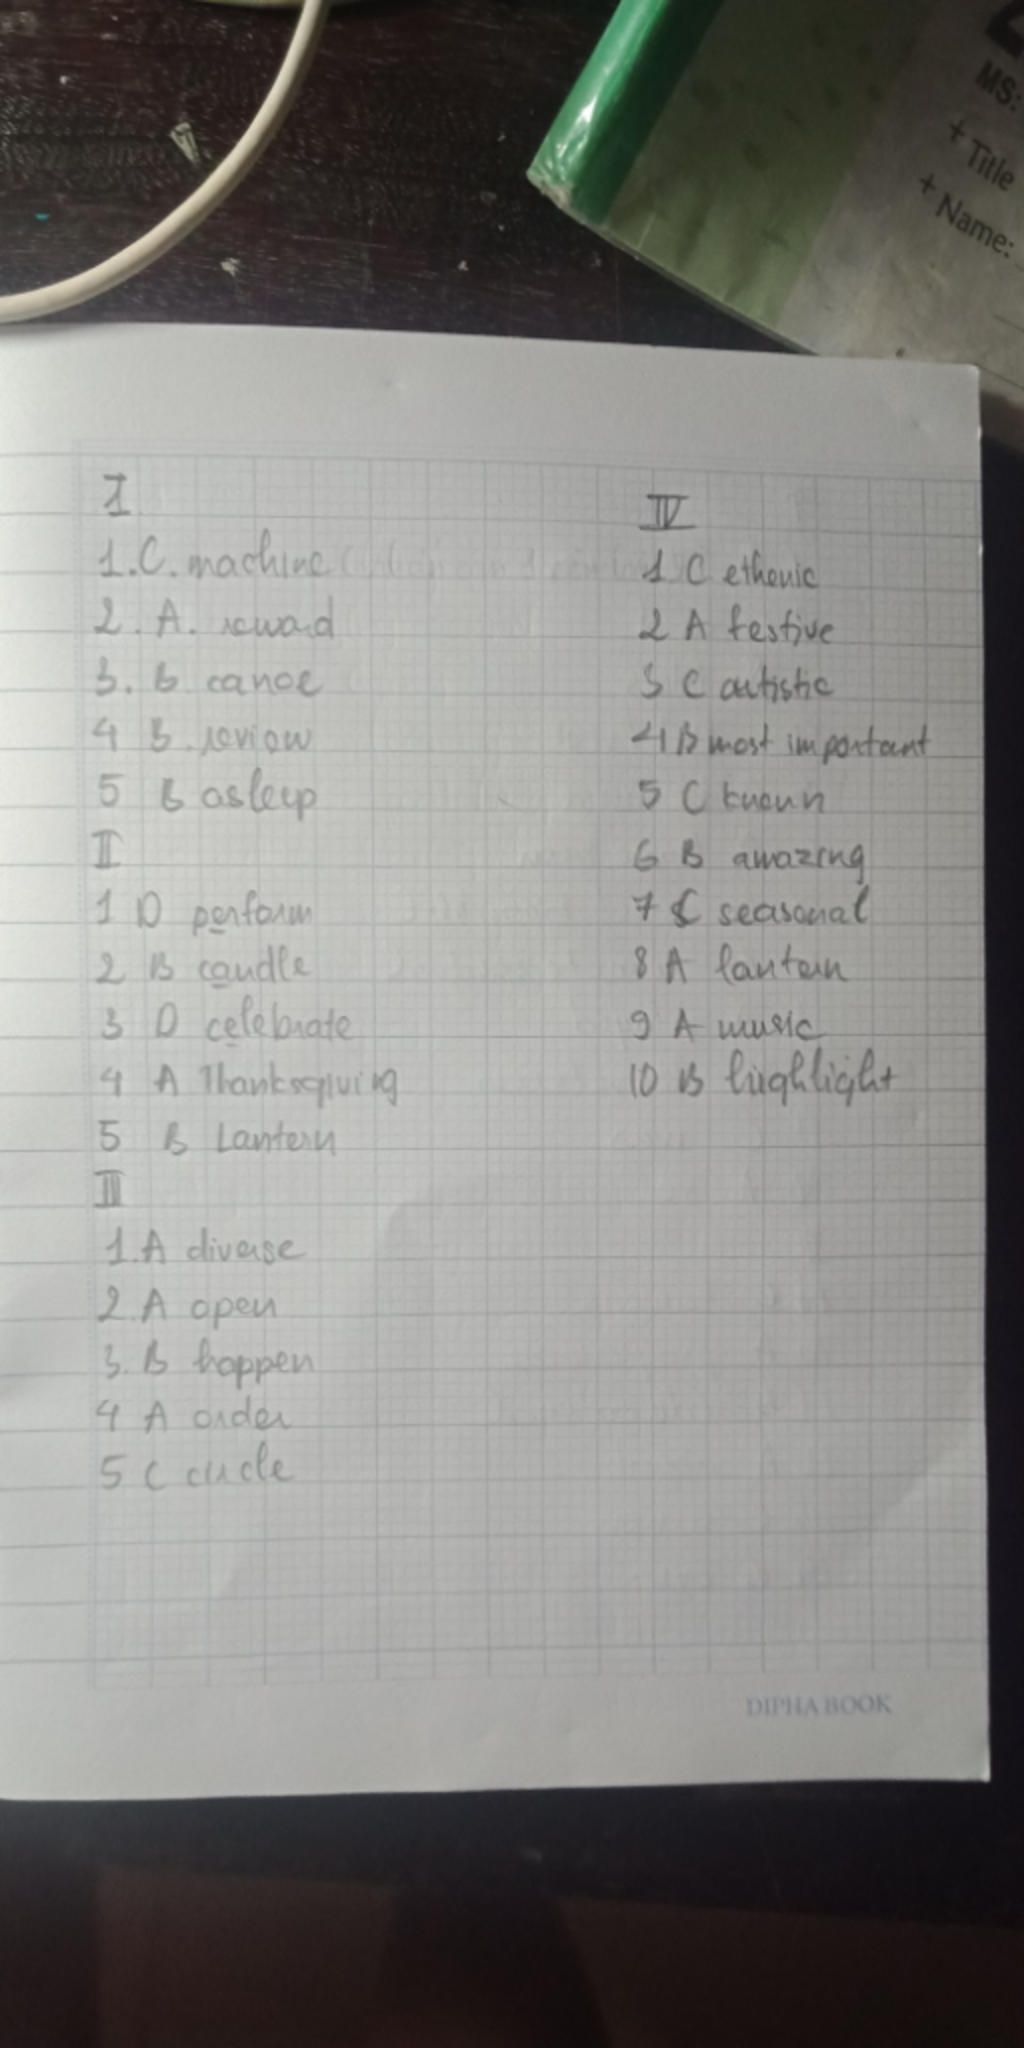 MS:
+ Title
+ Name:
I
1. C. machine
2. A. reward
3. B canoe
4 B. review
5 B asleep
II
1 D perform
2 B candle
3 D celebrate
4 A Thanksgiving
5 B Lantern
III
1. A diverse
2. A open
3. B happen
4 A order
5 C circle
IV
1 C ethenic
2 A festive
3 C artistic
4 B most important
5 C known
6 B amazing
7 C seasonal
8 A lantern
9 A music
10 B highlight
DIPHA BOOK